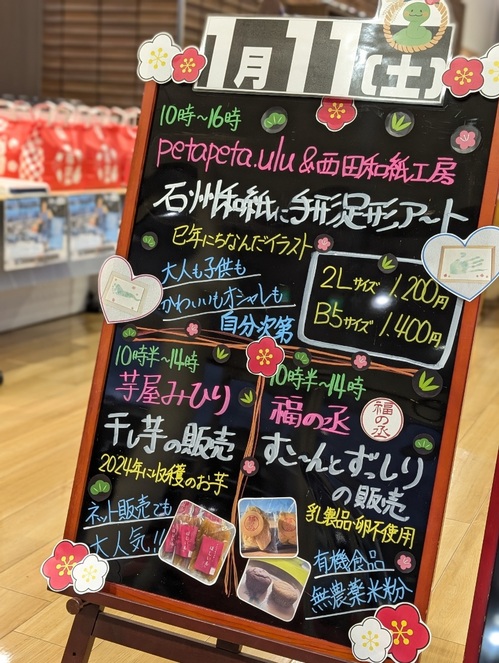 1月11(土)
10時~16時
petapeta.ulu&西田和紙工房
石州和紙に手形足形アート
巳年にちなんだイラスト
大人も子供も
かわいいもオシャレも
自分次第
2Lサイズ 1,200円
B5サイズ 1,400円
10時半~14時
芋屋みひり
干し芋の販売
2024年に収穫のお芋
ネット販売でも
大人気!!
10時半~14時
福の丞
福の丞
すこ~んとずっしり
の販売
乳製品・卵不使用
有機食品
無農薬米粉